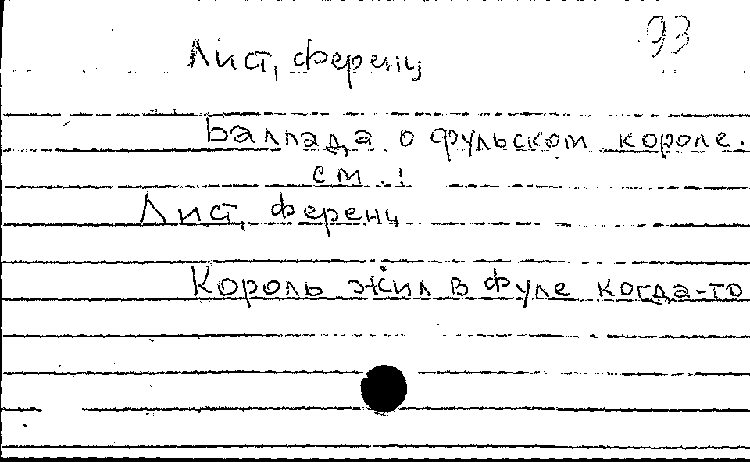 93
Лист, Ференц
Баллада о фульском короле.
см.:
Лист, Ференц
Король жил в Фуле когда-то